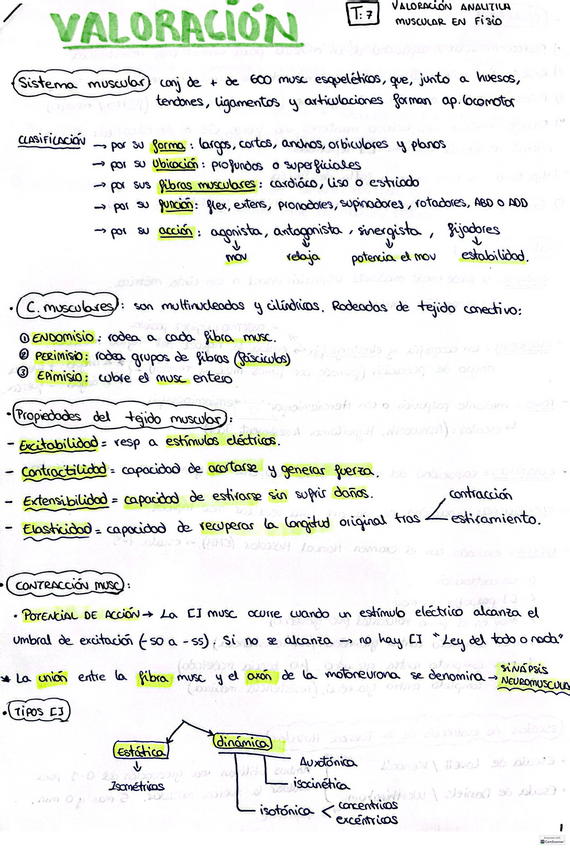 VALORACIÓN
T:7
VALORACIÓN ANALITICA
MUSCULAR EN FISIO
Sistema muscular: conj de + de 600 musc esqueléticos, que, junto a huesos,
tendones, ligamentos y articulaciones forman ap. locomotor
CLASIFICACIÓN → por su forma: largos, cortos, anchos, orbiculares y planos
→ por su ubicación: profundos o superficiales
→ por sus fibras musculares: cardiáco, liso o estriado
→ por su función: flex, extens, pronadores, supinadores, rotadores, ABD o ADD
→ por su acción: agonista, antagonista, sinergista, fijadores
mov relaja potencia el mov estabilidad.
· C. musculares: son multinucleados y cilíndricas. Rodeadas de tejido conectivo:
① ENDOMISIO: rodea a cada fibra musc.
② PERIMISIO: rodea grupos de fibras (fásciculos)
③ EPIMISIO: cubre el musc entero
· Propiedades del tejido muscular:
- Excitabilidad = resp a estímulos eléctricos.
- Contractilidad = capacidad de acortarse y generar fuerza.
- Extensibilidad = capacidad de estirarse sin sufrir daños.
- Elasticidad = capacidad de recuperar la longitud original tras
contracción
estiramiento.
· CONTRACCIÓN MUSC:
· POTENCIAL DE ACCIÓN → La CJ musc ocurre cuando un estímulo eléctrico alcanza el
umbral de excitación (-50 a -55). Si no se alcanza → no hay CJ "Ley del todo o nada"
* La unión entre la fibra musc y el axón de la motoneurona se denomina → SINÁPSIS
NEUROMUSCULA
· TIPOS CJ
Estática
dinámica
Isométricas
Auxotónica
isocinética
isotónica
concentricas
excéntricas
1
CamScanner